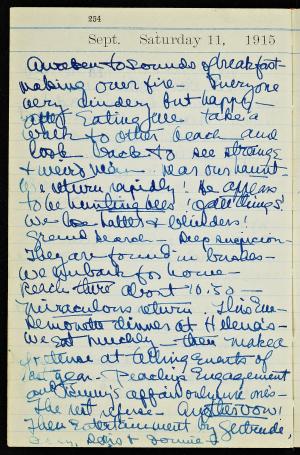 254
Sept. Saturday 11, 1915
Awoken to sounds of breakfast
making over fire - Everyone
very cindery but happy -
After Eating all take a
walk to other beach and
look back to see strange
+ near our haunt -
return rapidly! He appears
to be hunting bees "Queer things"
We lose hatlets + blinders!
Grand search - Deep suspicion -
They are found in bushes -
We embark for home -
Reach there about 10:30 -
miraculous return. This Eve -
Demonotes dinner at Helena's -
We eat muchly - then make
at telling Events of
last year. Peach's Engagement
and Jimmy's affair only one's -
The rest refuse - Another vow!
Then Entertainment by Gertrude,
+ Jonnie